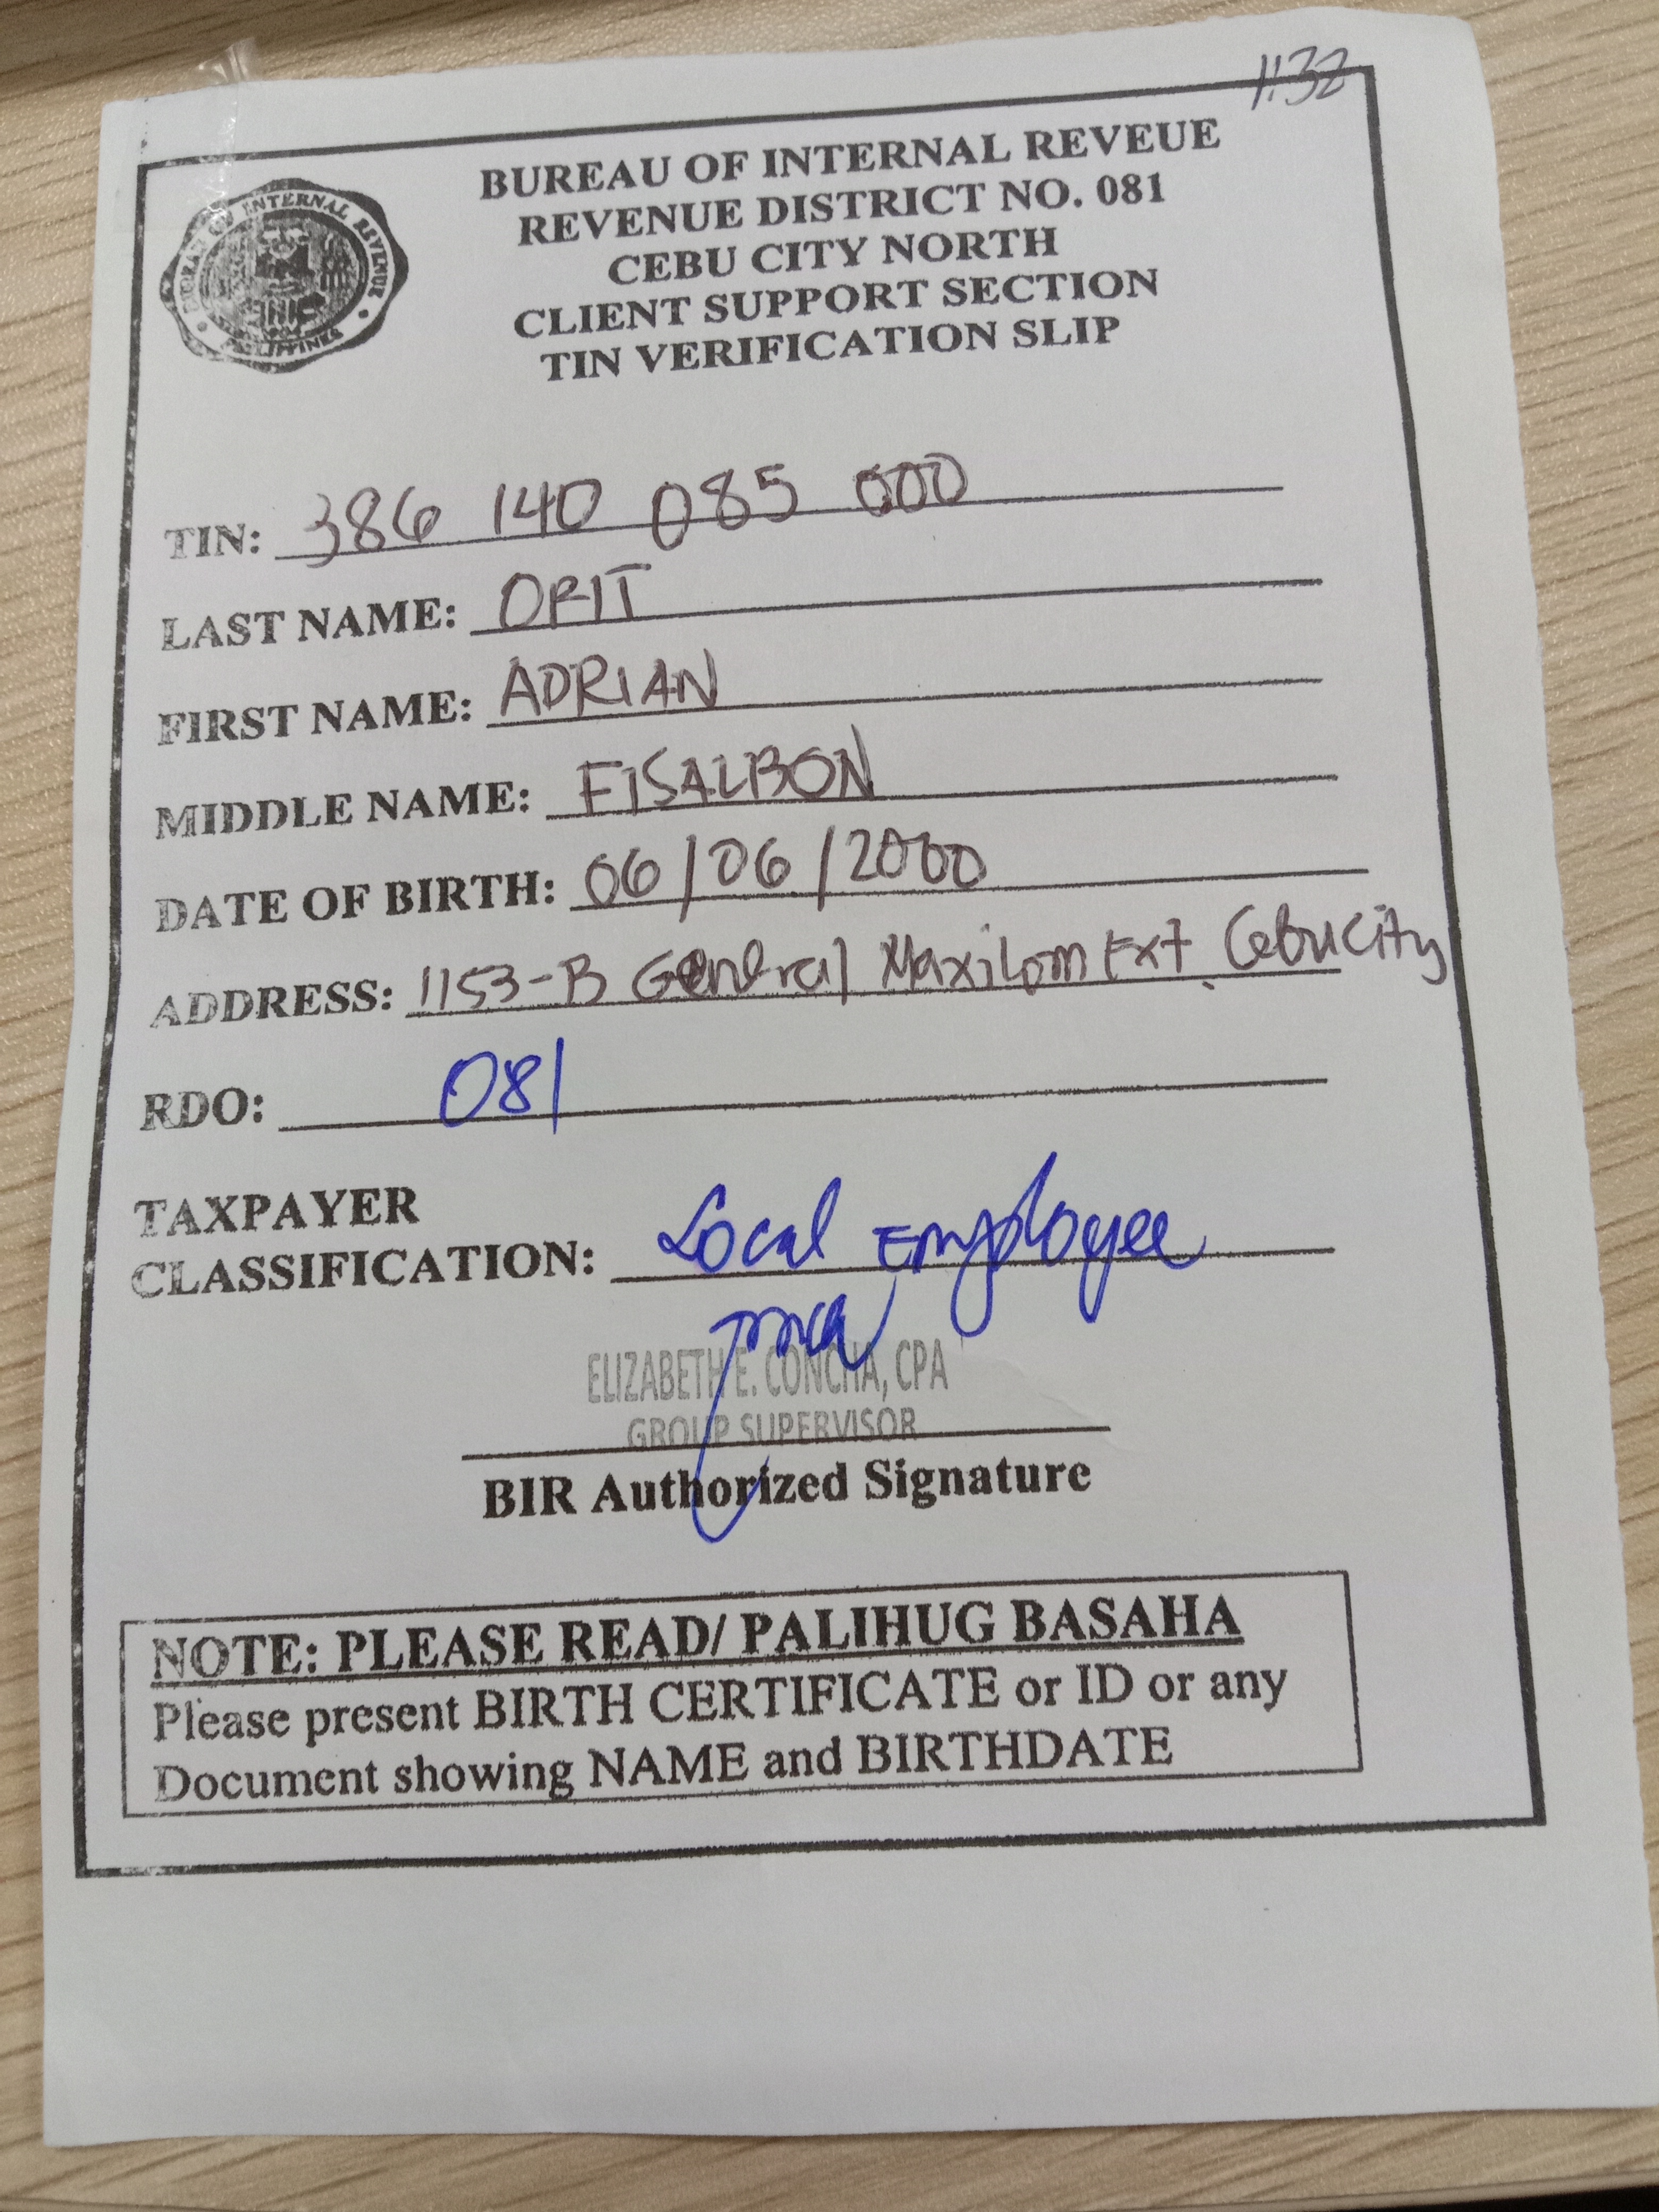 11:32
BUREAU OF INTERNAL REVENUE
PHILIPPINES
BUREAU OF INTERNAL REVEUE
REVENUE DISTRICT NO. 081
CEBU CITY NORTH
CLIENT SUPPORT SECTION
TIN VERIFICATION SLIP
TIN: 386 140 085 000
LAST NAME: OPIT
FIRST NAME: ADRIAN
MIDDLE NAME: FISALBON
DATE OF BIRTH: 06/06/2000
ADDRESS: 1153-B General Maxilom Ext. Cebu City
RDO: 081
TAXPAYER
CLASSIFICATION: Local Employee
ELIZABETH E. CONCHA, CPA
GROUP SUPERVISOR
BIR Authorized Signature
NOTE: PLEASE READ/ PALIHUG BASAHA
Please present BIRTH CERTIFICATE or ID or any
Document showing NAME and BIRTHDATE